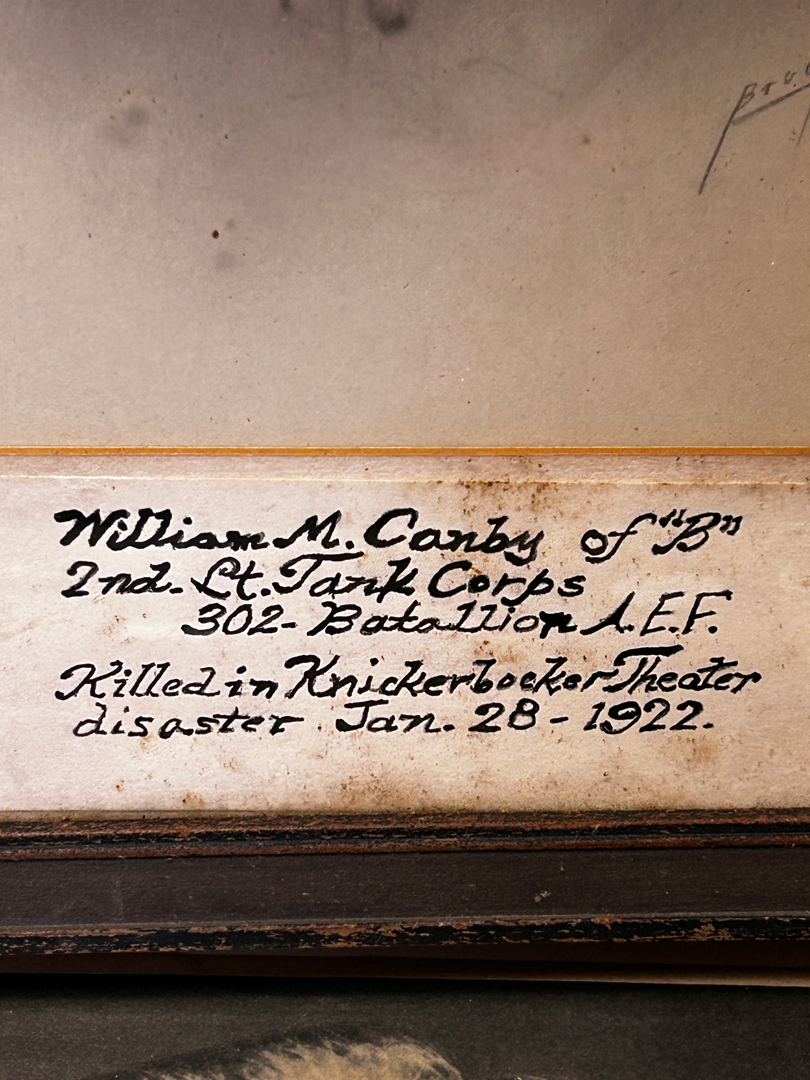 William M. Canby of "B"
2nd. Lt. Tank Corps
302- Batallion A.E.F.
Killed in Knickerbocker Theater
disaster Jan. 28 - 1922.